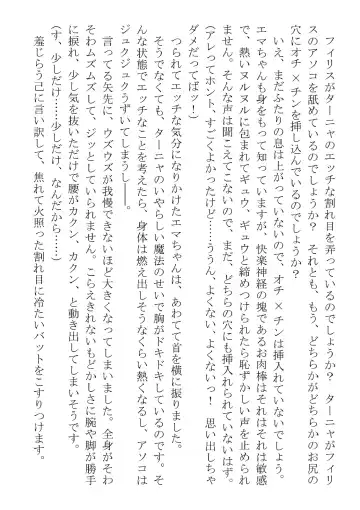 フィリスがターニャのエッチな割れ目を弄っているのでしょうか？　ターニャがフィリ
スのアソコを舐めているのでしょうか？　それとも、もう、どちらかがどちらかのお尻の
穴にオチ×チンを挿し込んでいるのでしょうか？
いえ、まだふたりの息は上がっていないので、オチ×チンは挿入れていないでしょう。
エマちゃんも身をもって知っていますが、快楽神経の塊であるお肉棒はそれはそれは敏感
で、熱いヌルヌルに包まれてギュウ、ギュウと締めつけられたら恥ずかしい声を止められ
ません。そんな声は聞こえてこないので、まだ、どちらの穴にも挿入れられていないはず。
（アレってホント、すごくよかったけど……ううん、よくない、よくないっ！　思い出しちゃ
ダメだってばッ！）
つられてエッチな気分になりかけたエマちゃんは、あわてて首を横に振りました。
そうでなくても、ターニャのいやらしい魔法のせいで胸がドキドキしているのです。そ
んな状態でエッチなことを考えたら、身体は燃え出しそうなくらい熱くなるし、アソコは
ジュクジュクうずいてしまうし――。
言ってる矢先に、ウズウズが我慢できないほど大きくなってしまいました。全身がそわ
そわムズムズして、ジッとしていられません。こらえきれないもどかしさに腕や脚が勝手
に捩れ、少し気を抜いただけで腰がカクン、カクン、と動き出してしまいそうです。
（す、少しだけ……少しだけ、なんだから……）
羞じらう己に言い訳して、焦れて火照った割れ目に冷たいバットをこすりつけます。